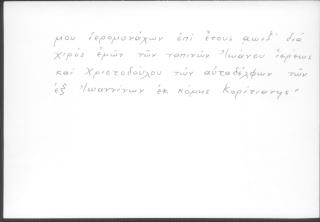 μου ἱερομονάχων ἐπί ἔτους αωιζʹ διά
χιρός ἐμῶν τῶν ταπινῶν Ἰωάνου ἱερέως
καί Χριστοδούλου τῶν αὐταδέλφων τῶν
ἐξ Ἰωαννίνων ἐκ κόμης Κορίτιανης